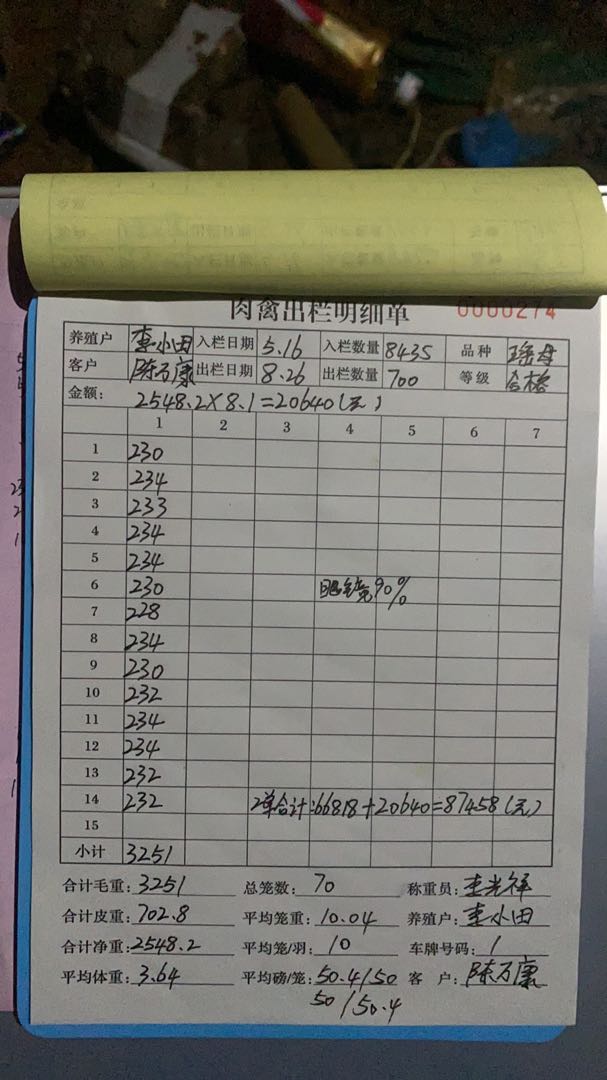 肉禽出栏明细单 0000274
养殖户 李小田 入栏日期 5.16 入栏数量 8435 品种 瑶母
客户 陈万康 出栏日期 8.26 出栏数量 700 等级 合格
金额: 2548.2×8.1=20640(元)
1 2 3 4 5 6 7
1 230
2 234
3 233
4 234
5 234
6 230 眼镜90%
7 228
8 234
9 230
10 232
11 234
12 234
13 232
14 232 2单合计:66818+20640=87458(元)
15
小计 3251
合计毛重: 3251 总笼数: 70 称重员: 李光祥
合计皮重: 702.8 平均笼重: 10.04 养殖户: 李小田
合计净重: 2548.2 平均笼/羽: 10 车牌号码: 1
平均体重: 3.64 平均磅/笼: 50.4/50 客户: 陈万康
50/50.4